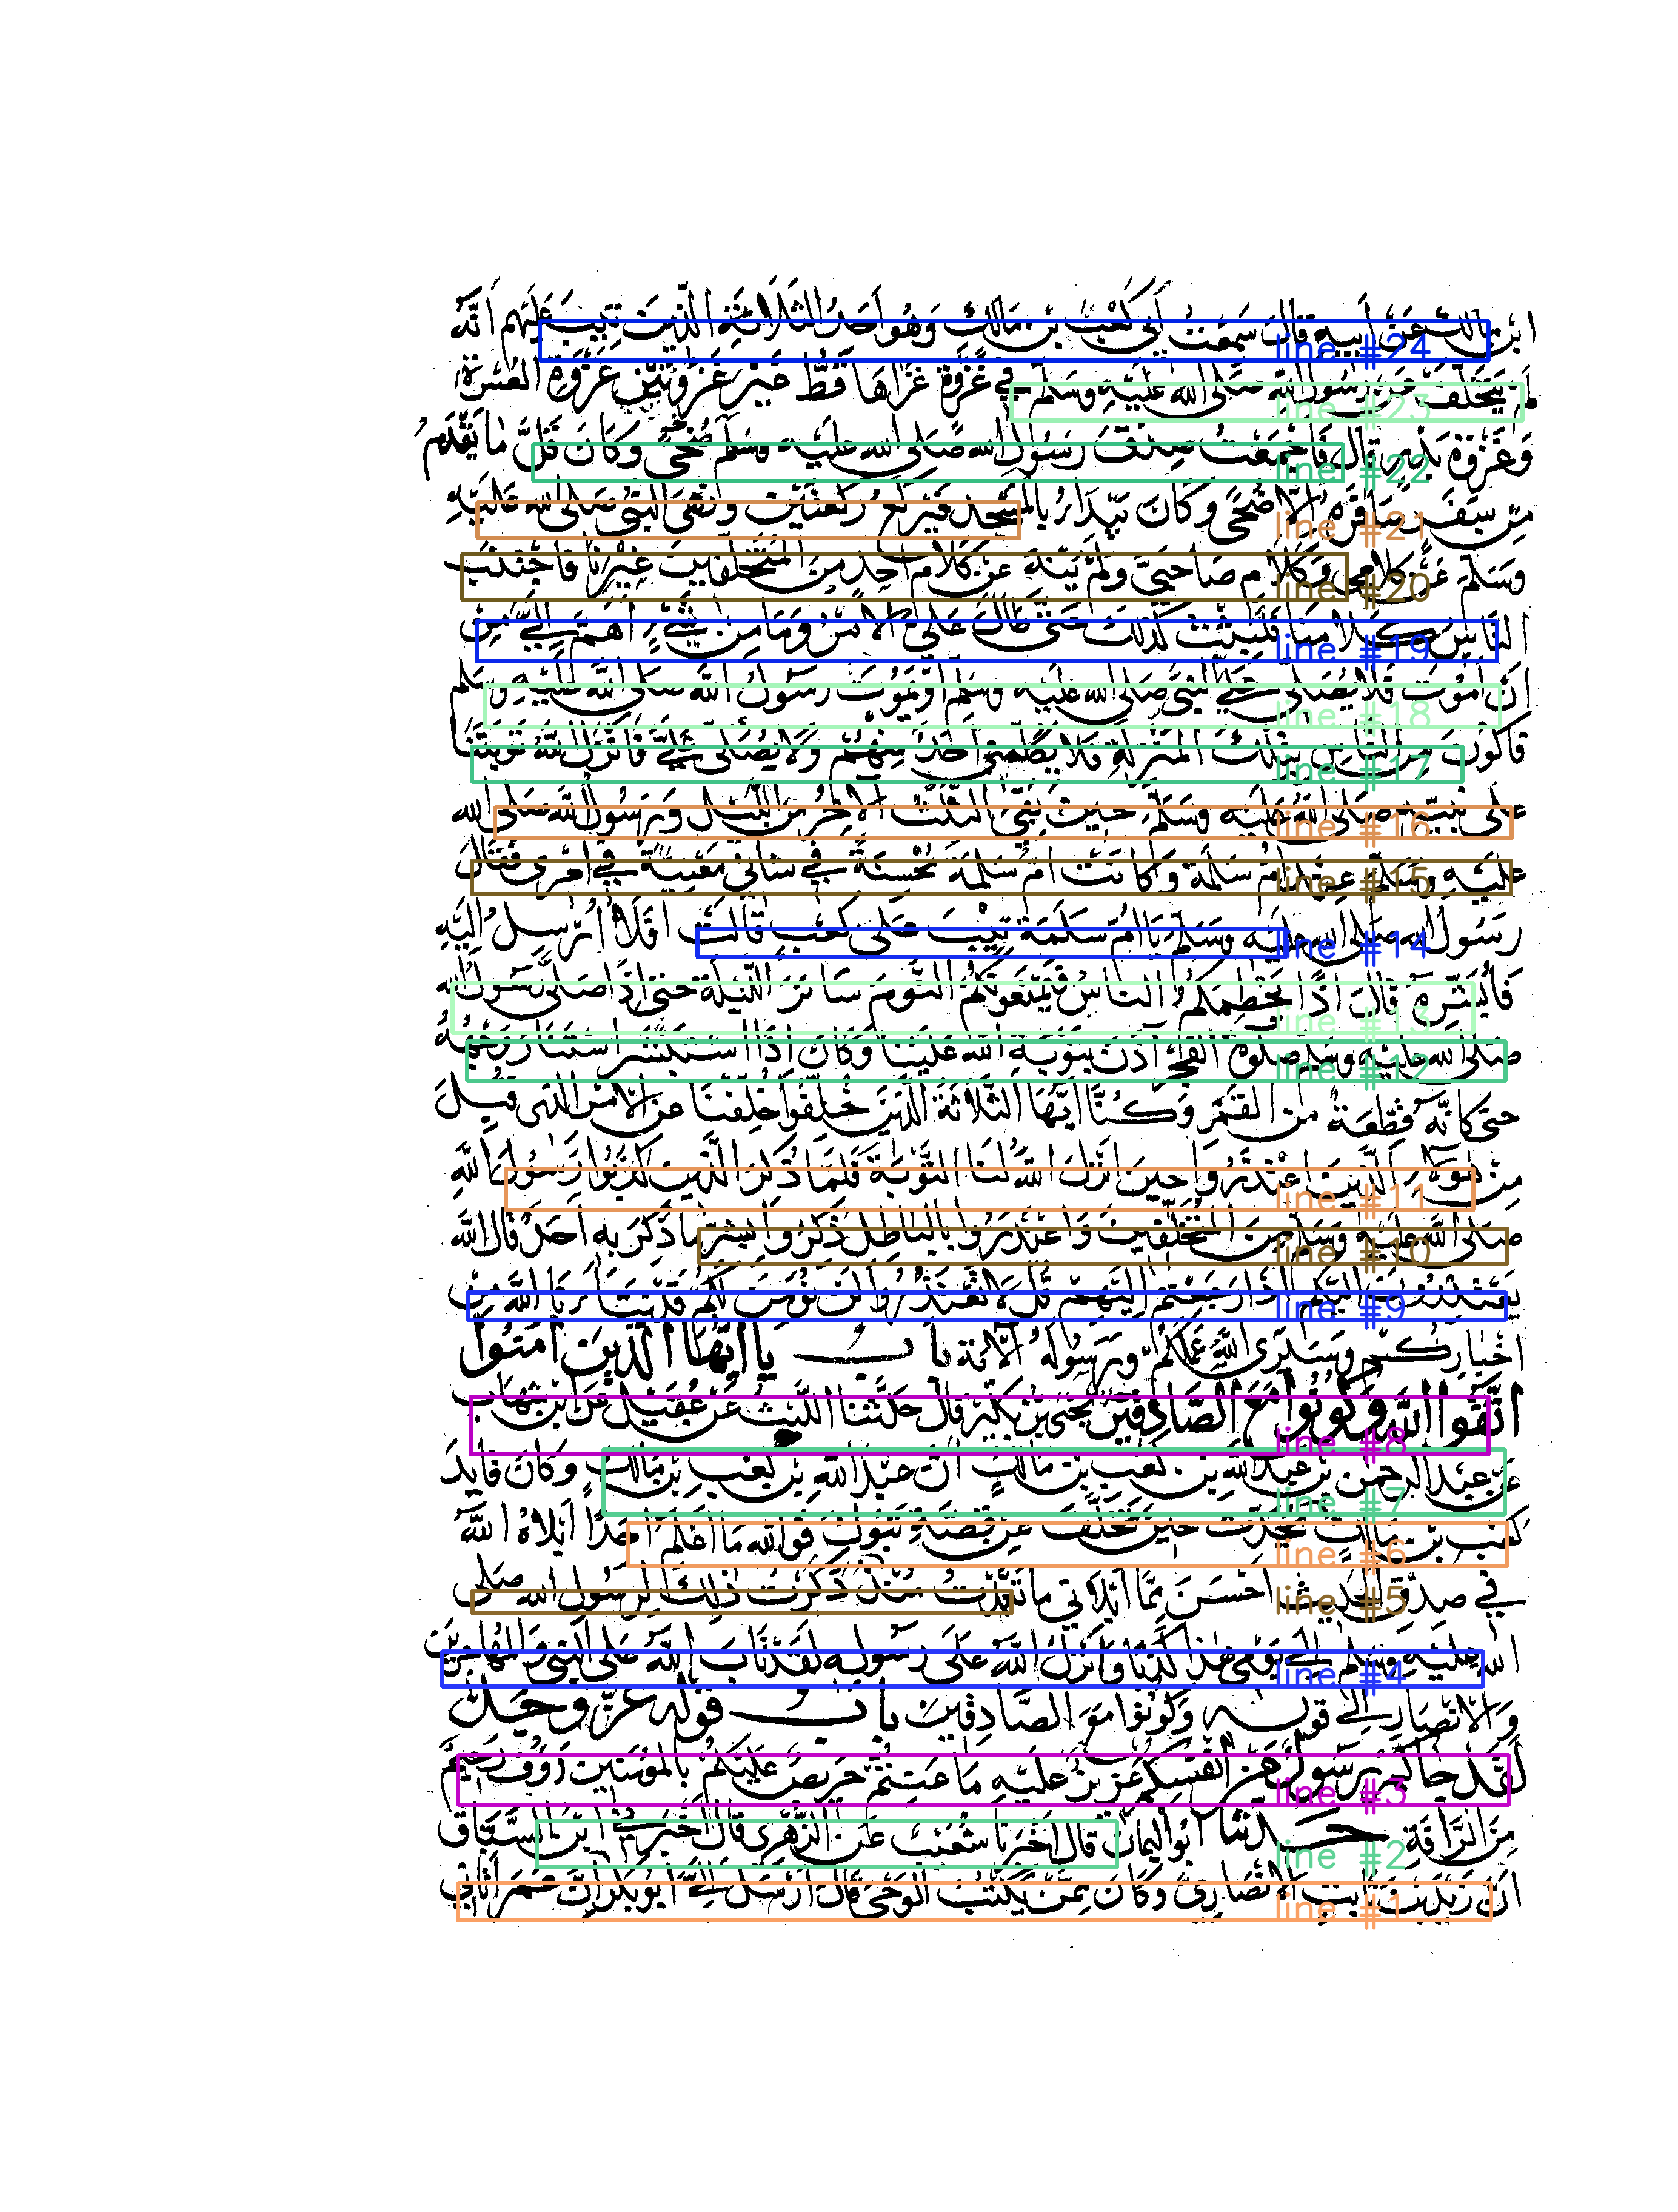 ابن مالك عن أبيه قال سمعت أبي كعب بن مالك وهو أحد الثلاثة الذين تيب عليهم أنه
لم يتخلف عن رسول الله صلى الله عليه وسلم في غزوة غزاها قط غير غزوتين غزوة العسرة
وغزوة بدر قال فأجمعت صدق رسول الله صلى الله عليه وسلم ضحى وكان قل ما يقدم
من سفر سافره إلا ضحى وكان يبدأ بالمسجد فيركع ركعتين ونهى النبي صلى الله عليه
وسلم عن كلامي وكلام صاحبي ولم ينه عن كلام أحد من المتخلفين غيرنا فاجتنب
الناس كلامنا فلبثت كذلك حتى طال علي الأمر وما من شيء أهم إلي من
أن أموت فلا يصلي علي النبي صلى الله عليه وسلم أو يموت رسول الله صلى الله عليه وسلم
فأكون من الناس بتلك المنزلة فلا يكلمني أحد منهم ولا يصلى علي فأنزل الله توبتنا
على نبيه صلى الله عليه وسلم حين بقي الثلث الآخر من الليل ورسول الله صلى الله
عليه وسلم عند أم سلمة وكانت أم سلمة محسنة في شأني معنية في أمري فقال
رسول الله صلى الله عليه وسلم يا أم سلمة تيب على كعب قالت أفلا أرسل إليه
فأبشره قال إذا يحطمكم الناس فيمنعونكم النوم سائر الليلة حتى إذا صلى رسول الله
صلى الله عليه وسلم صلوة الفجر آذن بتوبة الله علينا وكان إذا استبشر استنار وجهه
حتى كأنه قطعة من القمر وكنا أيها الثلاثة الذين خلفوا خلفنا عن الأمر الذي قبل
من هؤلاء الذين اعتذروا حين أنزل الله لنا التوبة فلما ذكر الذين كذبوا رسول الله
صلى الله عليه وسلم من المتخلفين واعتذروا بالباطل ذكروا بشر ما ذكر به أحد قال الله
يعتذرون إليكم إذا رجعتم إليهم قل لا تعتذروا لن نؤمن لكم قد نبأنا الله من
أخباركم وسيرى الله عملكم ورسوله الآية باب يا أيها الذين آمنوا
اتقوا الله وكونوا مع الصادقين يحيى بن بكير قال حدثنا الليث عن عقيل عن ابن شهاب
عن عبد الرحمن بن عبد الله بن كعب بن مالك أن عبد الله بن كعب بن مالك وكان قايد
كعب بن مالك يحدث حين تخلف عن قصة تبوك فوالله ما أعلم أحدا أبلاه الله
في صدق الحديث أحسن مما أبلاني ما تعمدت منذ ذكرت ذلك لرسول الله صلى
الله عليه وسلم إلى يومي هذا كذبا وأنزل الله على رسوله لقد تاب الله على النبي والمهاجرين
والأنصار إلى قوله وكونوا مع الصادقين باب قوله عز وجل
لقد جاءكم رسول من أنفسكم عزيز عليه ما عنتم حريص عليكم بالمؤمنين رؤوف رحيم
من الرأفة حدثنا أبو اليمان قال أخبرنا شعيب عن الزهري قال أخبرني ابن السباق
أن زيد بن ثابت الأنصاري وكان ممن يكتب الوحي قال أرسل إلي أبو بكر أن عمر أتاني
line #24
line #23
line #22
line #21
line #20
line #19
line #18
line #17
line #16
line #15
line #14
line #13
line #12
line #11
line #10
line #9
line #8
line #7
line #6
line #5
line #4
line #3
line #2
line #1